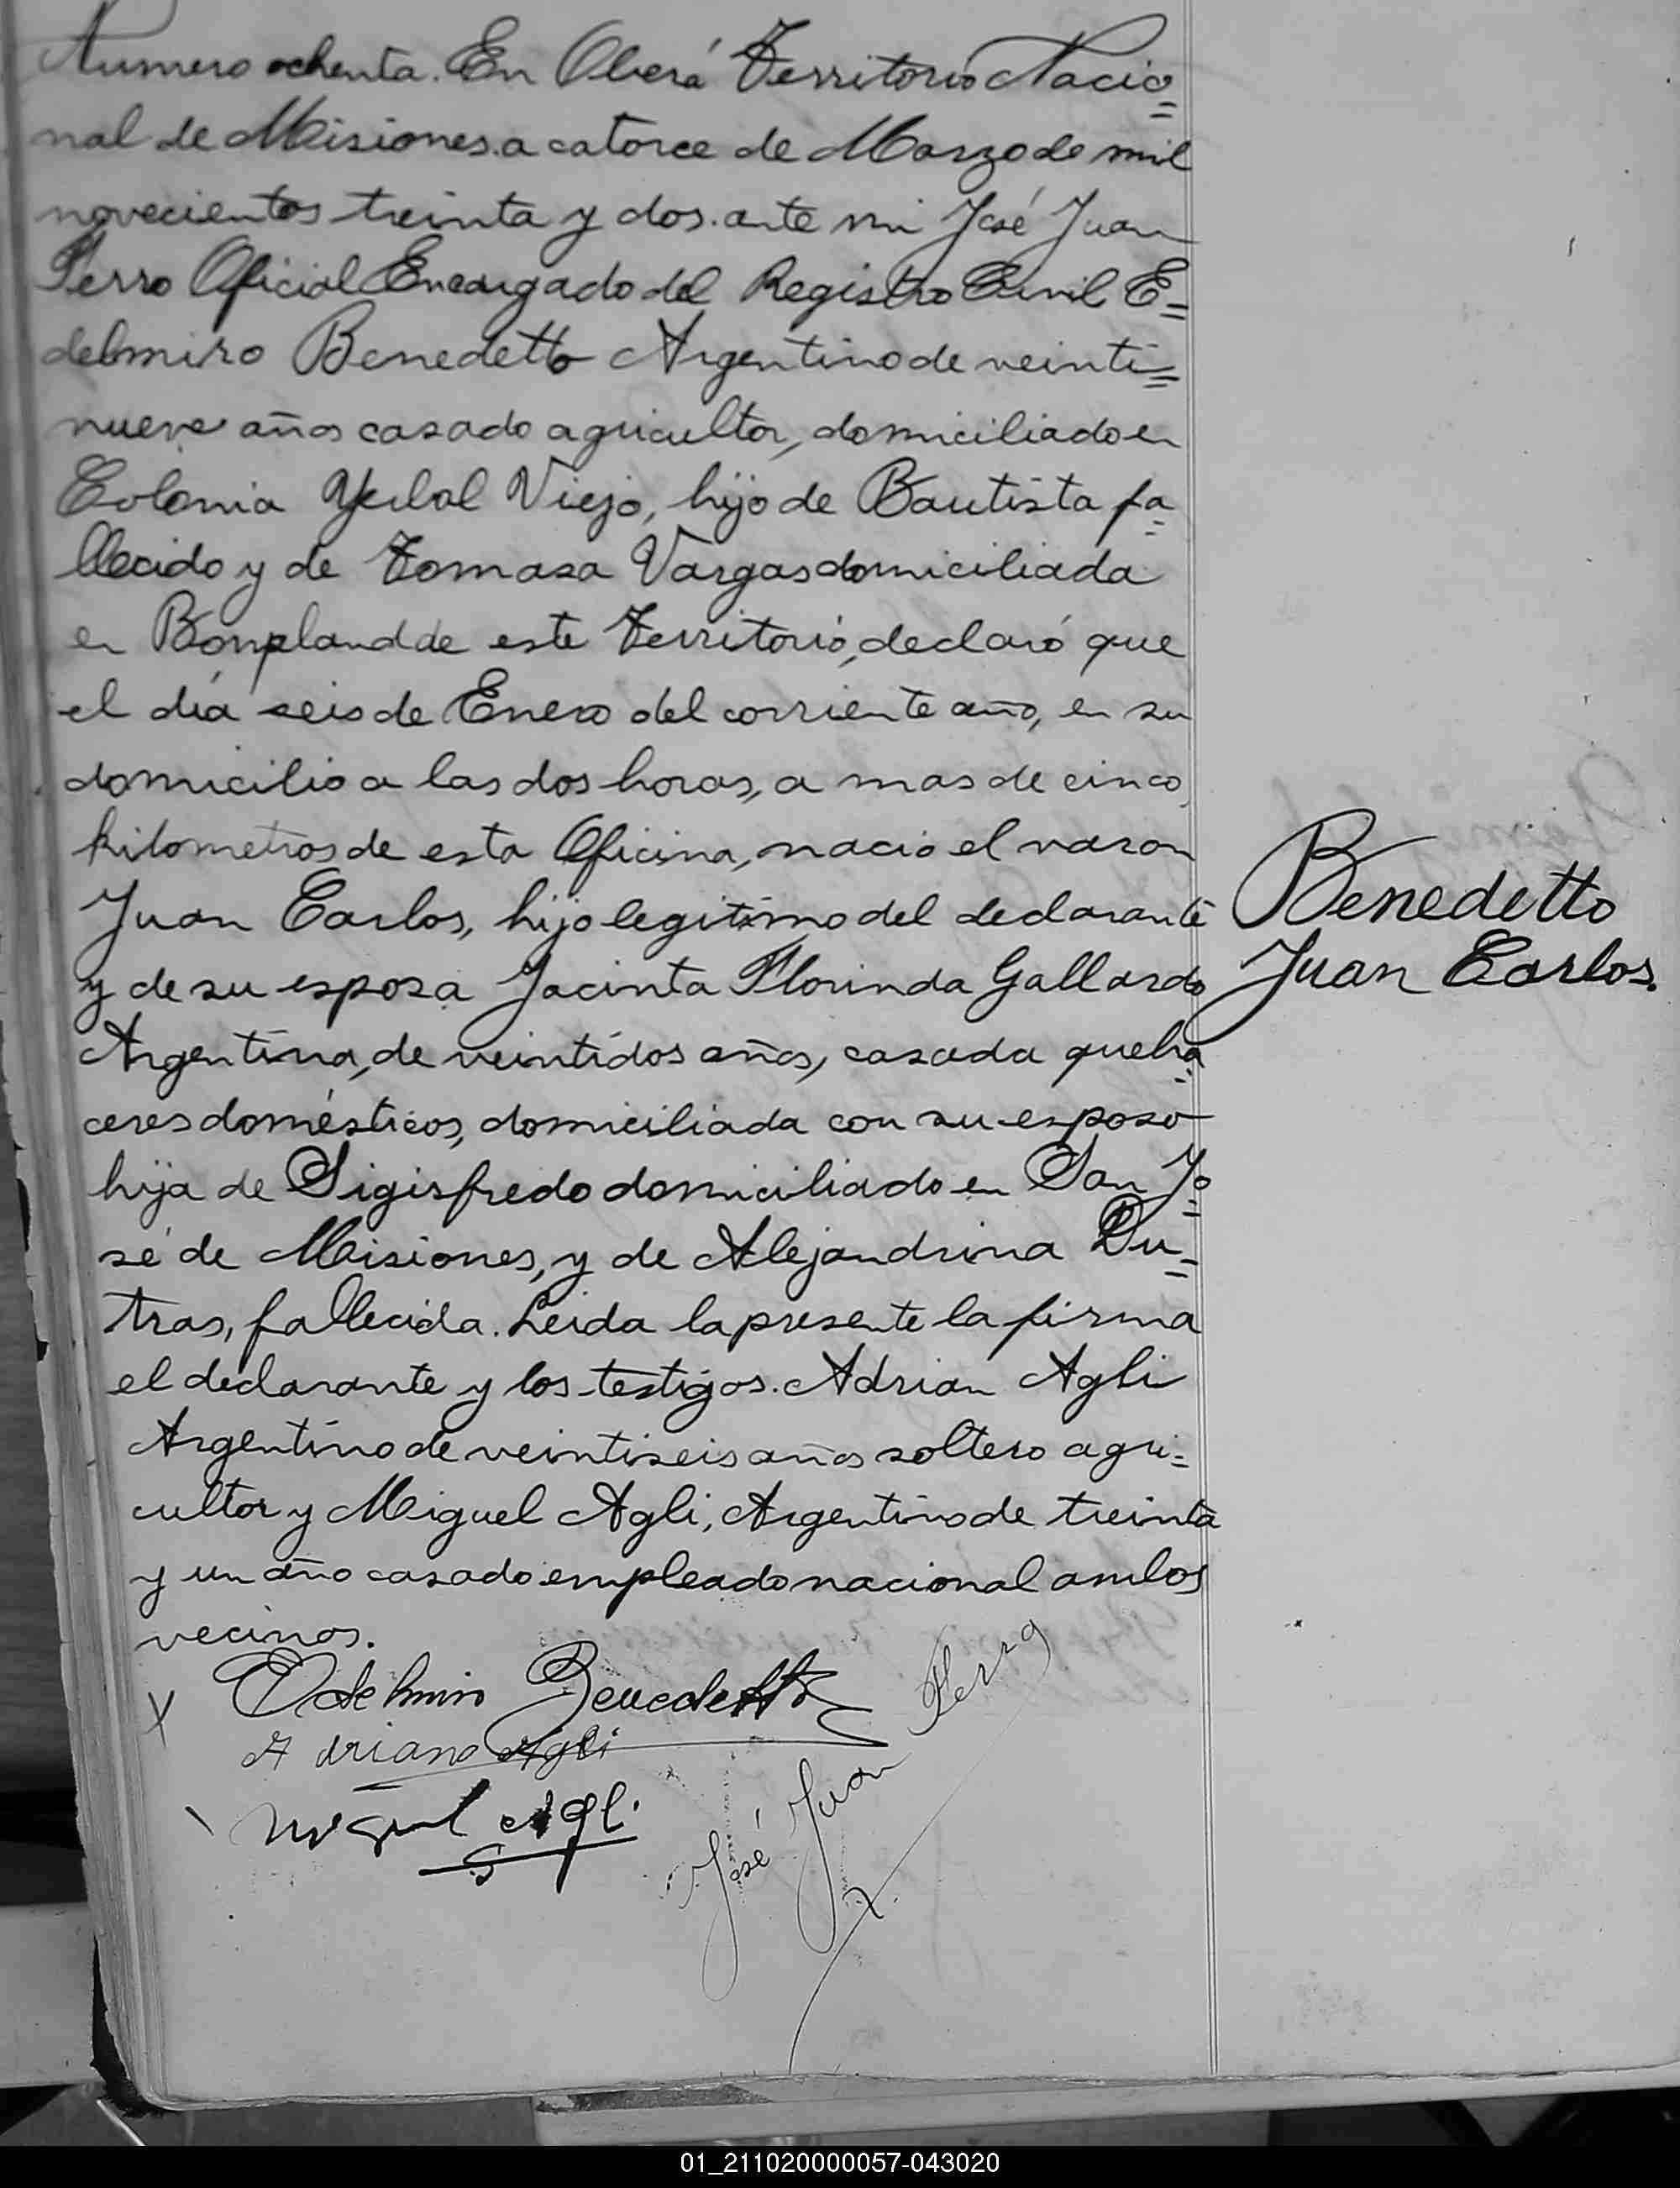 Numero ochenta. En Oberá Territorio Nacio=
nal de Misiones a catorce de Marzo de mil
novecientos treinta y dos. ante mi José Juan
Ferro Oficial Encargado del Registro Civil E=
delmiro Benedetto Argentino de veinti=
nueve años casado agricultor, domiciliado en
Colonia Yerbal Viejo, hijo de Bautista fa=
llecido y de Tomasa Vargas domiciliada
en Bonpland de este Territorio, declaró que
el día seis de Enero del corriente año, en su
domicilio a las dos horas, a mas de cinco
kilometros de esta Oficina, nacio el varon
Juan Carlos, hijo legitimo del declarante
y de su esposa Jacinta Florinda Gallardo
Argentina, de veintidos años, casada queha=
ceres domésticos, domiciliada con su esposo
hija de Sigisfredo domiciliado en San Jo=
sé de Misiones, y de Alejandrina Du=
tras, fallecida. Leida la presente la firma
el declarante y los testigos. Adrian Agli
Argentino de veintiseis años soltero agri=
cultor y Miguel Agli, Argentino de treinta
y un año casado empleado nacional ambos
vecinos.
Benedetto
Juan Carlos.
X Edelmiro Benedetto
Adriano Agli
Miguel Agli
José Juan Ferro
01_211020000057-043020